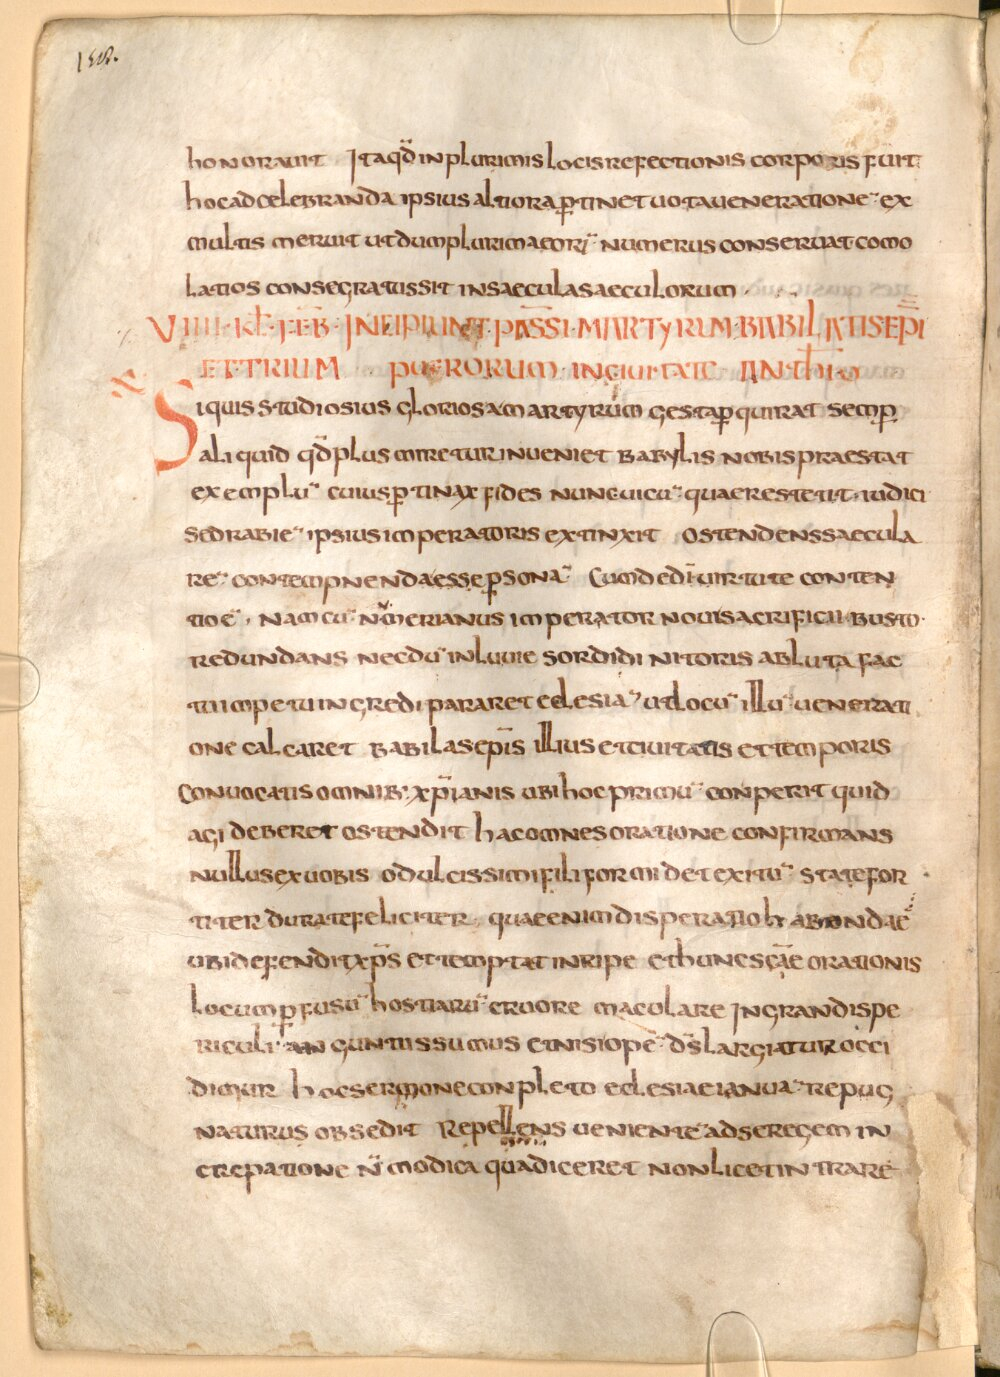 158.
honorauit Itaqd̄ inplurimis locisrefectionis corporis fuit
hocadcelebranda ipsius altiorap̄tinet uotaueneratione¨ ex
multis meruit utdumplurimaeorū numerus conseruat como
latios consegratussit insaeculasaeculorum
VIIII·KL̄·FEB̄·INCIPIUNT·PASS̄I·MARTYRUM·BABILATISEP̄I
ET·TRIUM PUERORUM·INCIUITATE ANTHIO
Siquis studiosius gloriosamartyrum gestap̄quirat semp̄
aliquid qd̄plus miretur inueniet babylis nobispraestat
exemplu¨ cuiusp̄tinax fides nunguicu¨ quaerestetit iudici
sedrabie¨ ipsiusimperatoris extinxit ostendenssaecula
re¨ contempnendaessep̄sona¨ Cumdedī uirtute conten
tioe¨. namcu¨ numerianus imperator nouisacrificii busto
redundans necdu¨ inluuie sordidi nitoris abluta fac
tuimpetuingredi pararet eclesia¨ utlocu¨ illu¨ uenerati
one calcaret babilasep̄is illius etciuitatis ettemporis
Conuocatis omnib: xp̄ianis ubihocprimu¨ conperit quid
agi deberet ostendit hacomnesoratione confirmans
nullusexuobis odulcissimifili formidetexitu¨ statefor
titer duratefeliciter, quaeenimdisperatio habondae¨
ubidefenditxp̄s ettemptat inripe ethunesc̄ae orationis
locump̄fusu¨ hostiaru¨ cruore macolare Ingrandispe
riculi an guntissumus etnisiope¨ dslargiatur occi
dimur hocsermoneconpleto eclesiaeianua¨ repug
naturus obsedit Repellens ueniente¨ adseregem in
crepatione n̄ modica quadiceret nonlicetintrare